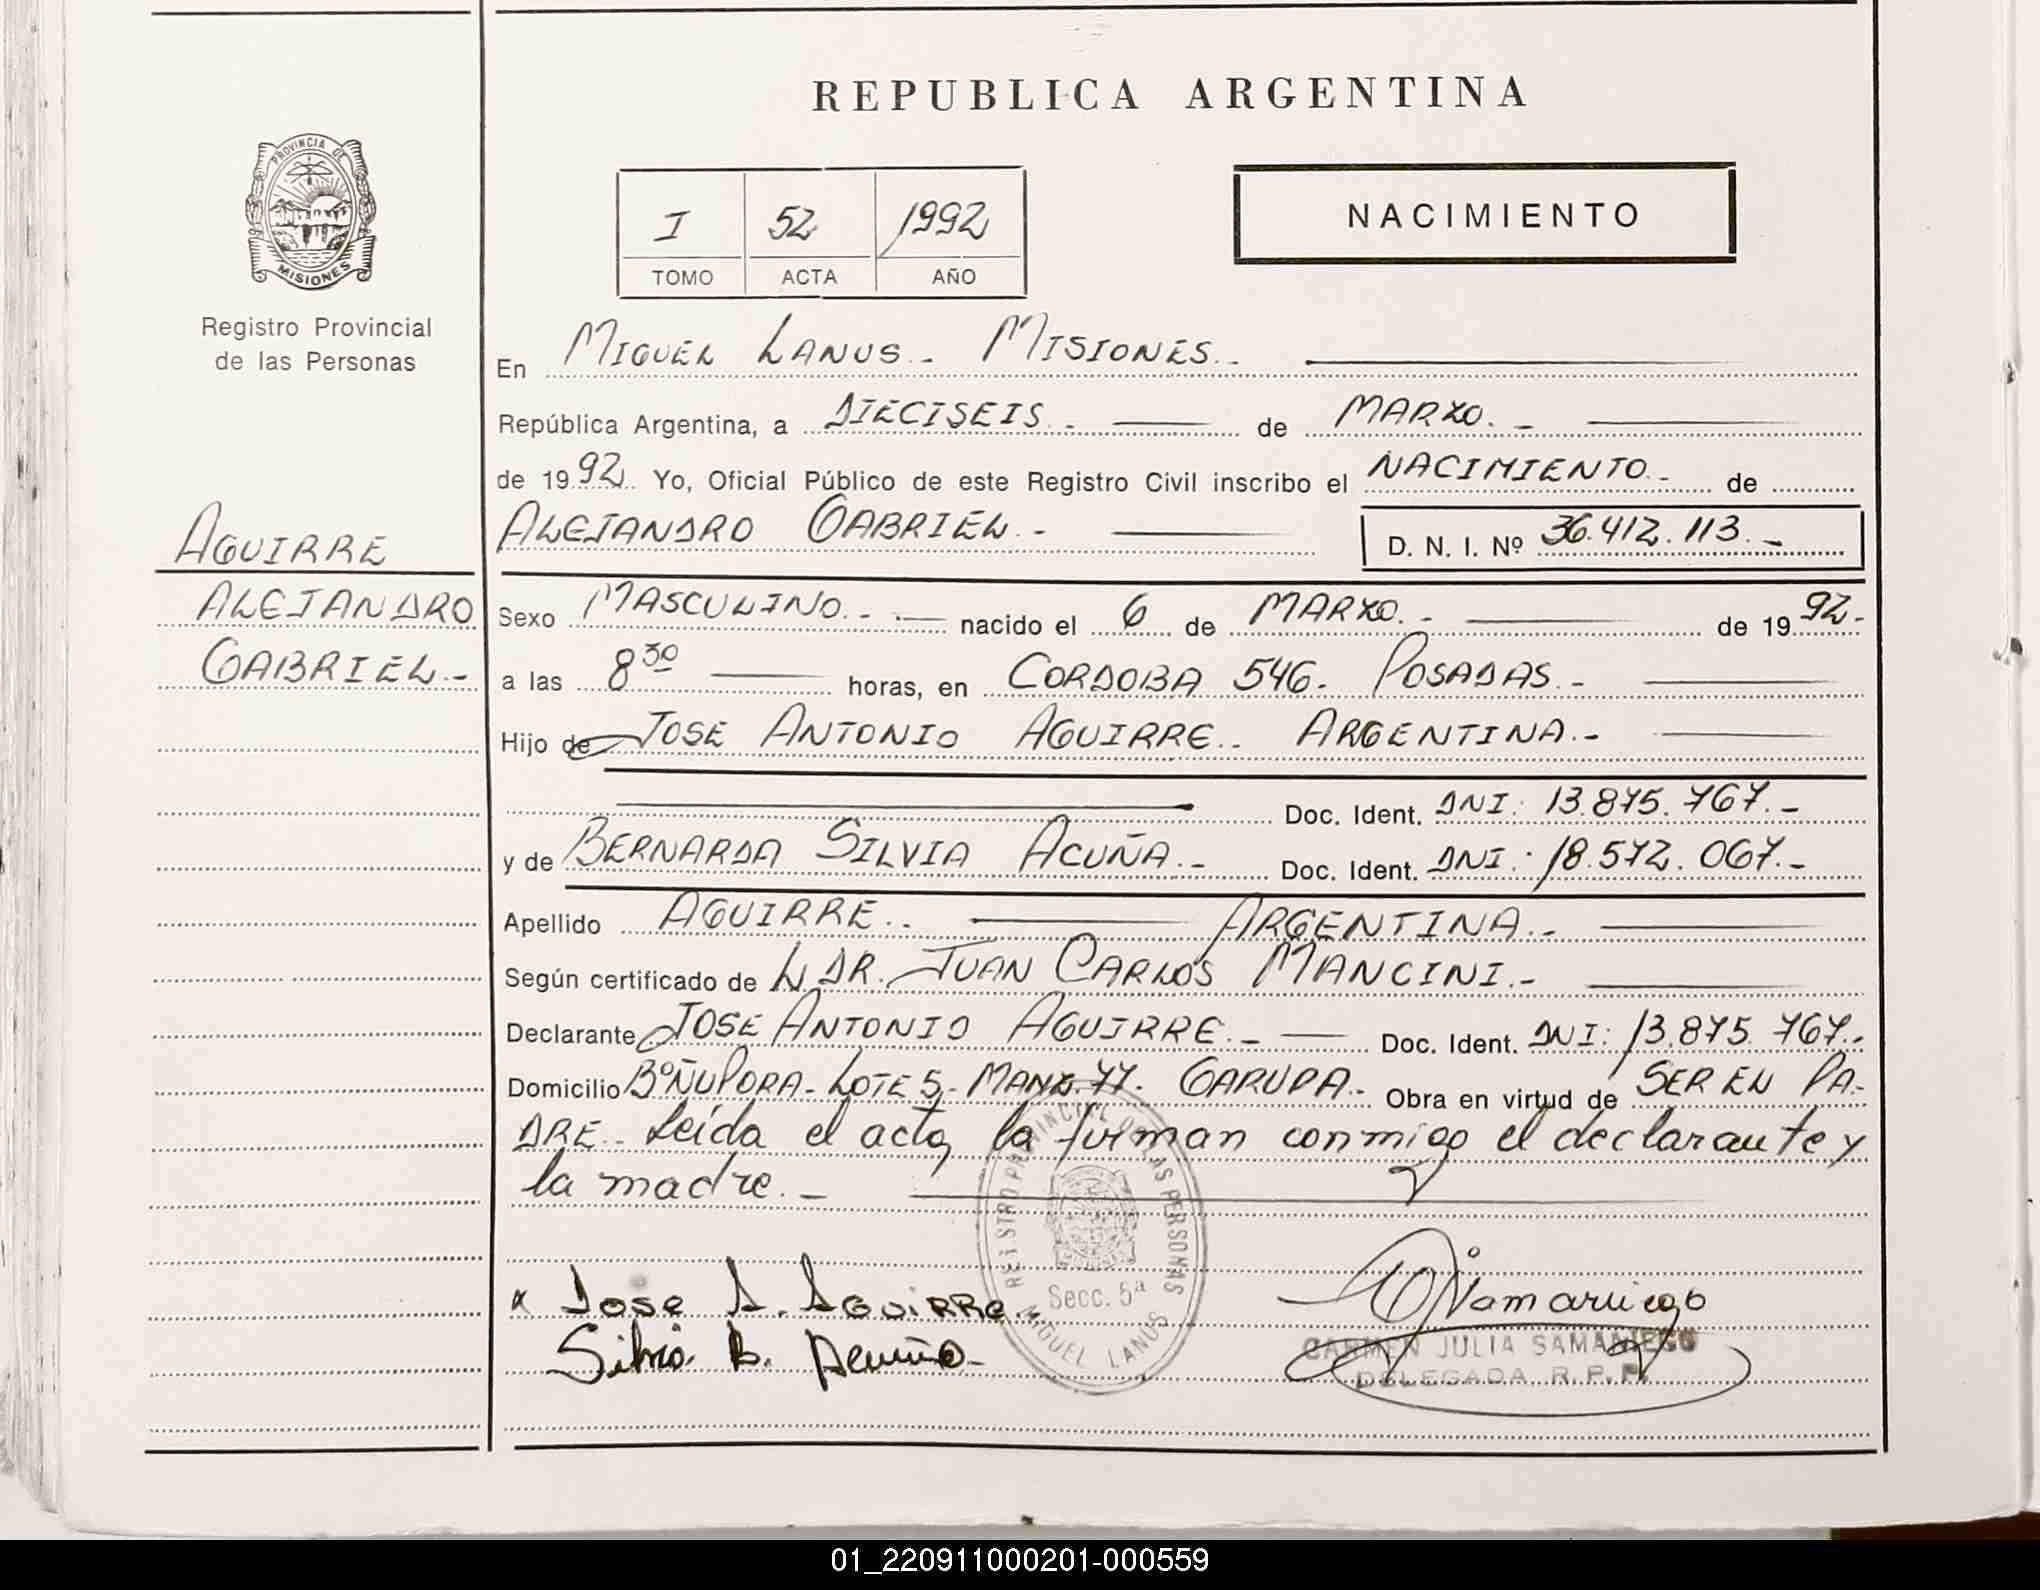 REPUBLICA ARGENTINA
PROVINCIA DE
MISIONES
Registro Provincial
de las Personas
I 52 1992
TOMO ACTA AÑO
NACIMIENTO
En MIGUEL LANUS.- MISIONES.-
República Argentina, a DIECISEIS.- de MARZO.-
de 1992. Yo, Oficial Público de este Registro Civil inscribo el NACIMIENTO.- de
AGUIRRE
ALEJANDRO
GABRIEL.-
ALEJANDRO GABRIEL.- D. N. I. Nº 36.412.113.-
Sexo MASCULINO.- nacido el 6 de MARZO.- de 1992.-
a las 8 30 horas, en CORDOBA 546. POSADAS.-
Hijo de JOSE ANTONIO AGUIRRE.. ARGENTINA.-
Doc. Ident. DNI: 13.875.767.-
y de BERNARDA SILVIA ACUÑA.- Doc. Ident. DNI: 18.572.067.-
Apellido AGUIRRE.. ARGENTINA.-
Según certificado de L DR. JUAN CARLOS MANCINI.-
Declarante JOSE ANTONIO AGUIRRE.- Doc. Ident. DNI: 13.875.767.-
Domicilio BºÑU PORA- LOTE 5- MANZ. 77. GARUPA.- Obra en virtud de SER EL PA-
DRE.. Leída el acta, la firman conmigo el declarante y
la madre.-
REGISTRO PROVINCIAL DE LAS PERSONAS
Secc. 5ª
MIGUEL LANUS
x Jose A. Aguirre.
Silvia B. Acuña-
CSamaniego
CARMEN JULIA SAMANIEGO
DELEGADA R.P.P.
01_220911000201-000559